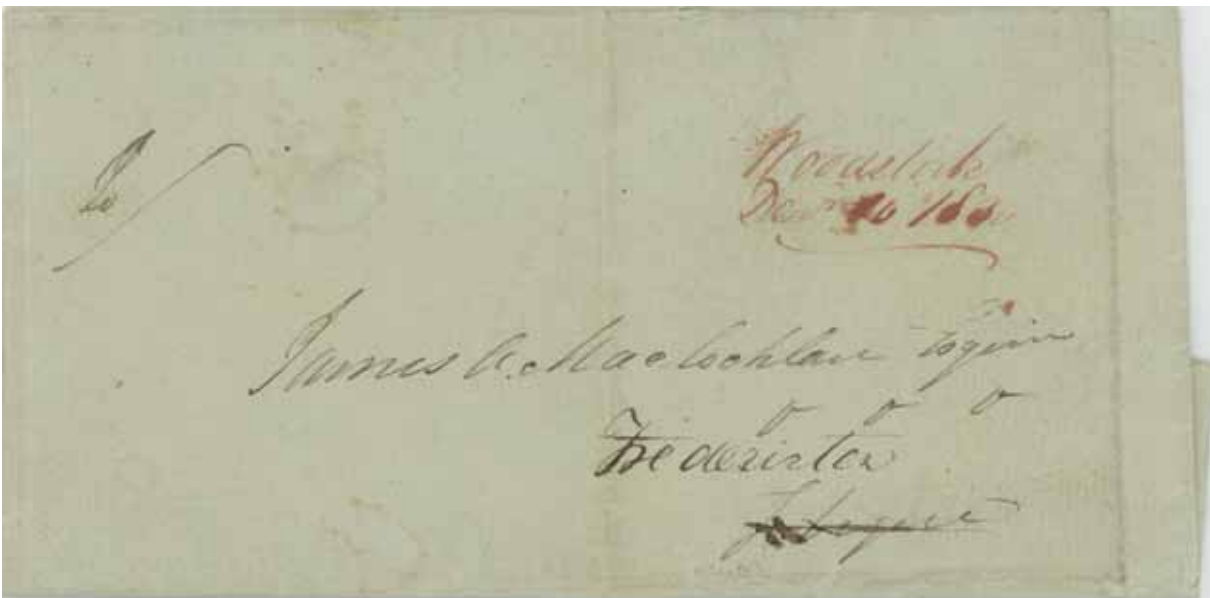 To/
Woodstock
10 183
James A. Maclochlan Esquire
Fredericton